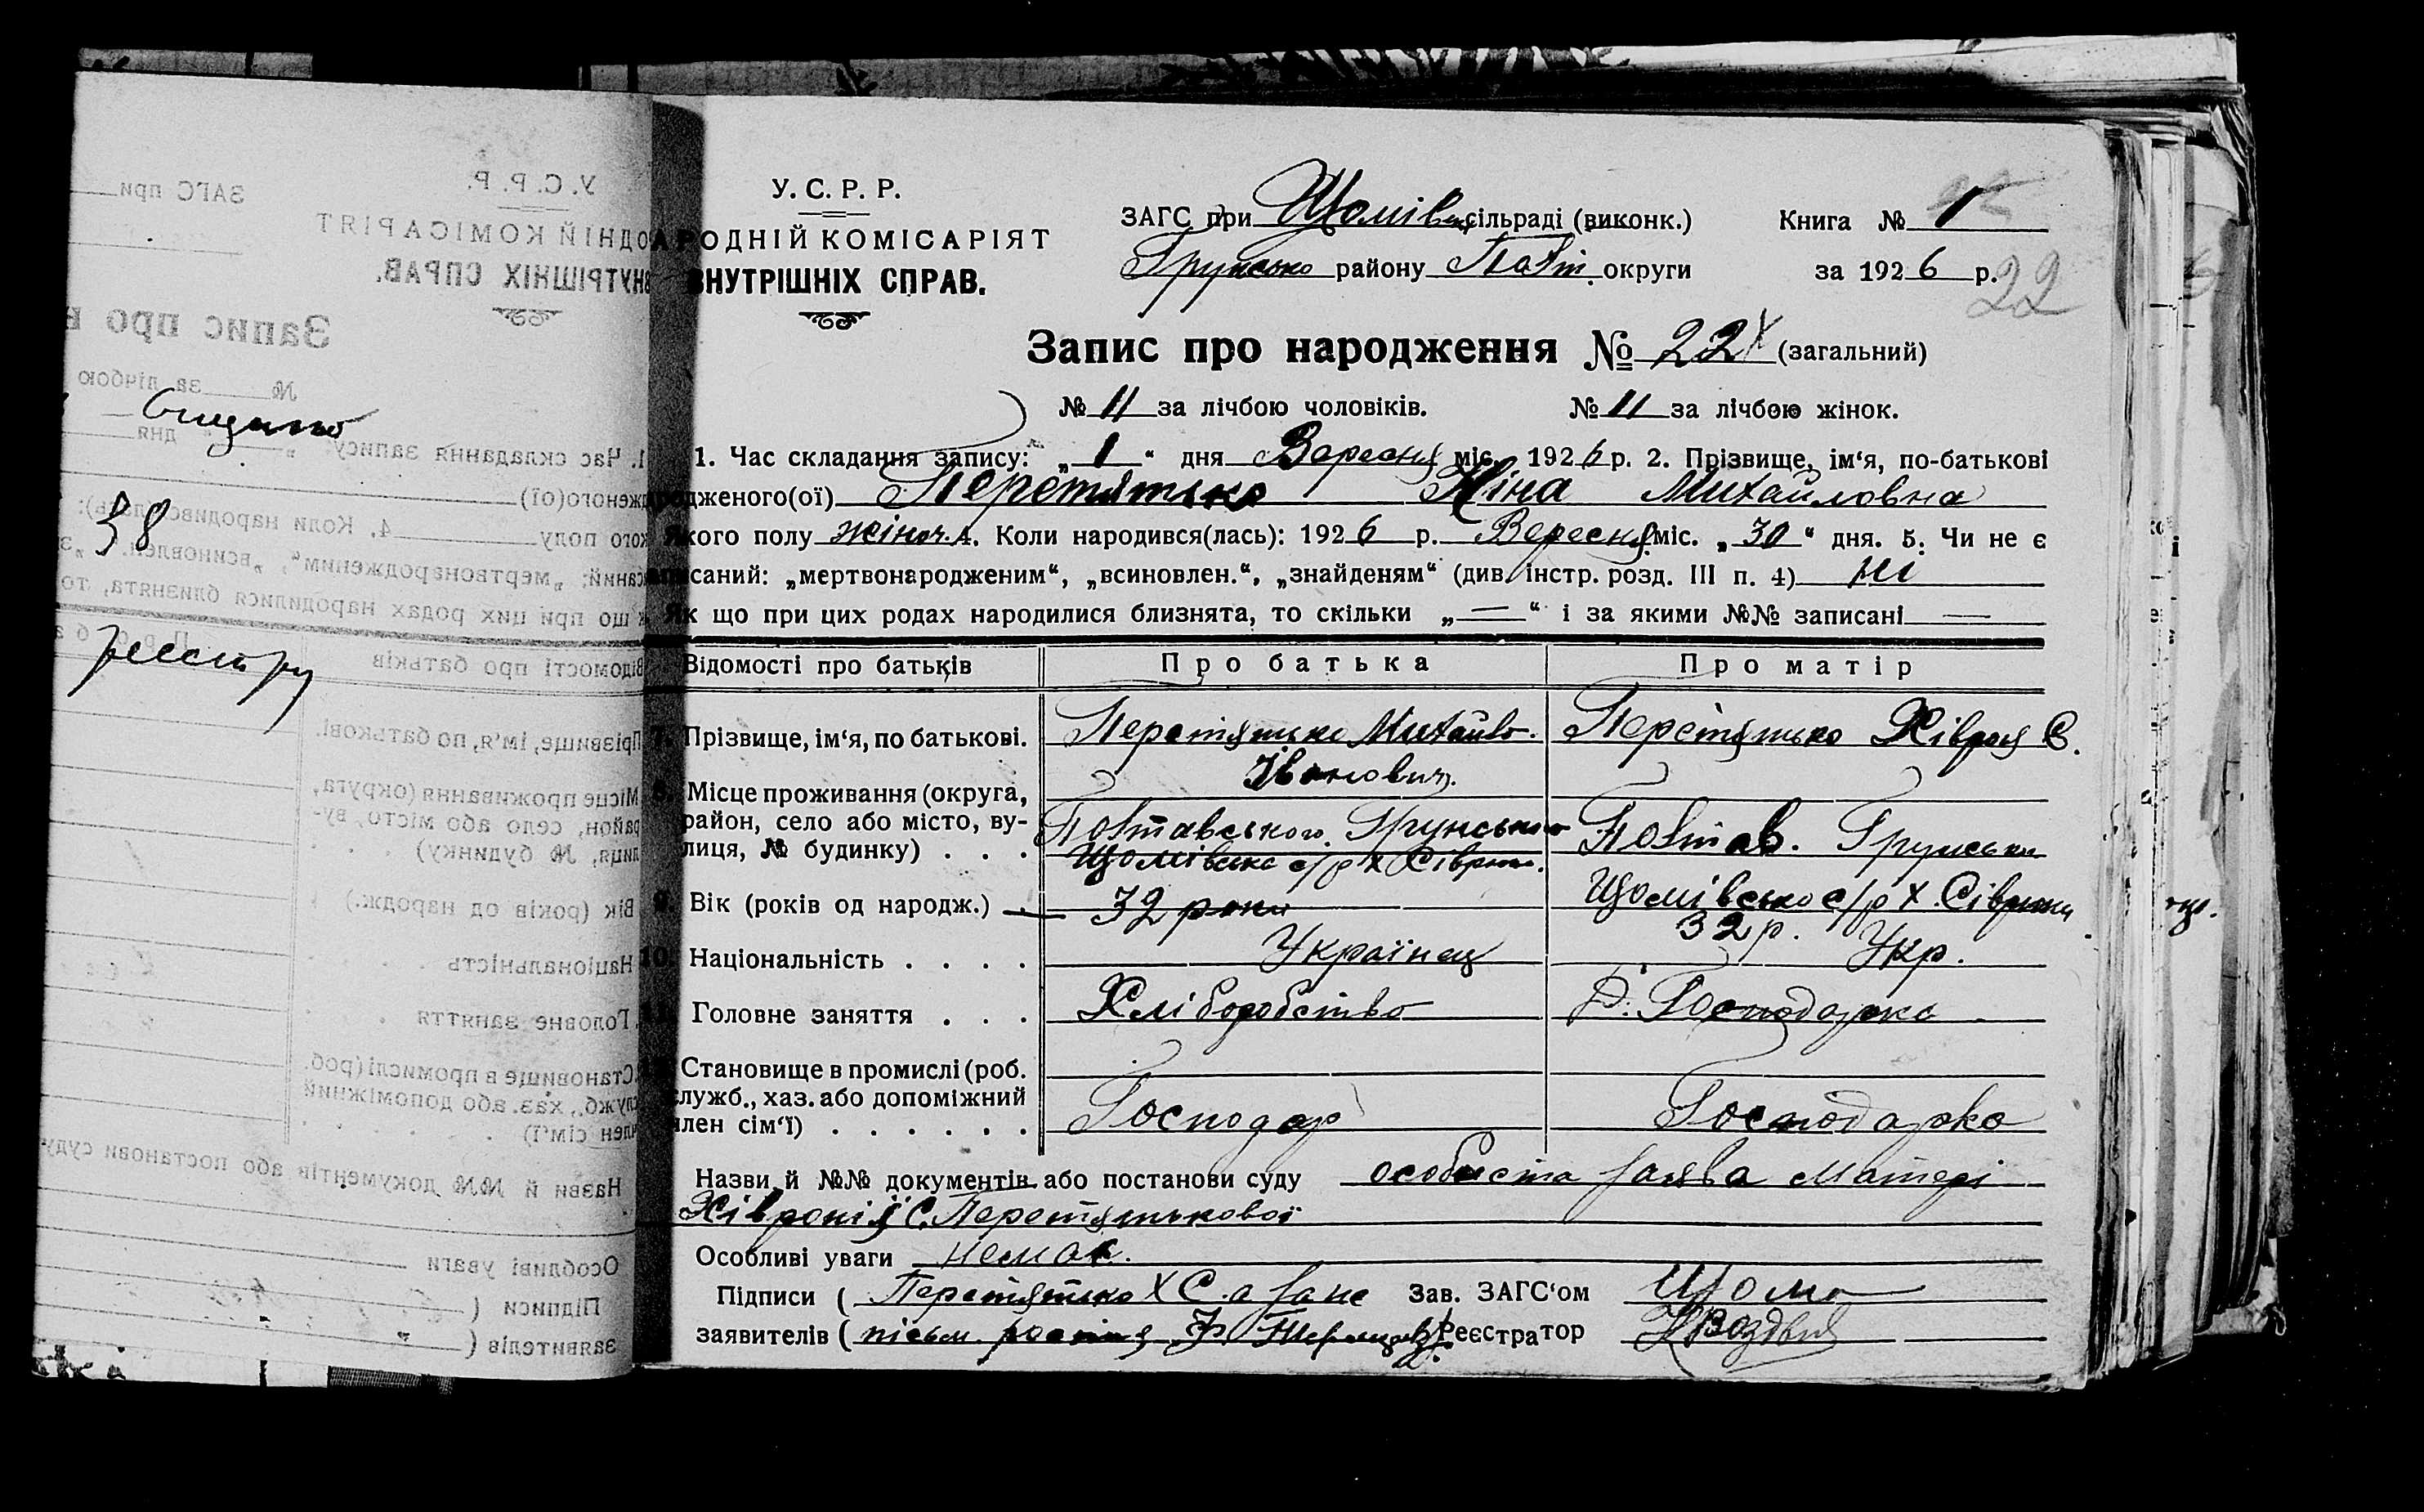 У. С. Р. Р.
РОДНІЙ КОМІСАРІЯТ
ВНУТРІШНІХ СПРАВ.
ЗАГС при Щомівс. сільраді (виконк.) Книга № 1
Грунсько району Полт. округи за 1926 р.
22
Запис про народження № 22 (загальний)
№ 11 за лічбою чоловіків. № 11 за лічбою жінок.
1. Час складання запису: „1“ дня Вересня міс. 1926 р. 2. Прізвище, ім‘я, по-батькові
дженого(ої) Перетятько Ніна Михайловна
кого полу жіноч. 4. Коли народився(лась): 1926 р. Вересня міс. „30“ дня. 5. Чи не є
саний: „мертвонародженим“, „всиновлен.“, „знайденям“ (див. інстр. розд. III п. 4) ні
Як що при цих родах народилися близнята, то скільки „—“ і за якими №№ записані —
Відомості про батьків Про батька Про матір
Прізвище, ім‘я, по батькові. Перетятько Михайло Іванович. Перетятько Хівроня С.
8. Місце проживання (округа, район, село або місто, вулиця, № будинку) . . . Полтавського Грунського Щомівсько с/р х Сіврюки. Полтав. Грунськ. Щомівсько с/р х. Сіврюки
9. Вік (років од народж.) 32 роки 32 р.
10. Національність . . . . Українец Укр.
Головне заняття . . . Хліборобство Д. Господарка
Становище в промислі (роб. служб., хаз. або допоміжний член сім‘ї) . . . . . . Господар Господарка
Назви й №№ документів або постанови суду особиста заява Матері
Хівронії С. Перетятькової
Особливі уваги немає.
Підписи ( Перетятько Х С. а за не Зав. ЗАГС‘ом Щомо
заявителів ( письм. Реєстратор
Сищино
38
реєстру